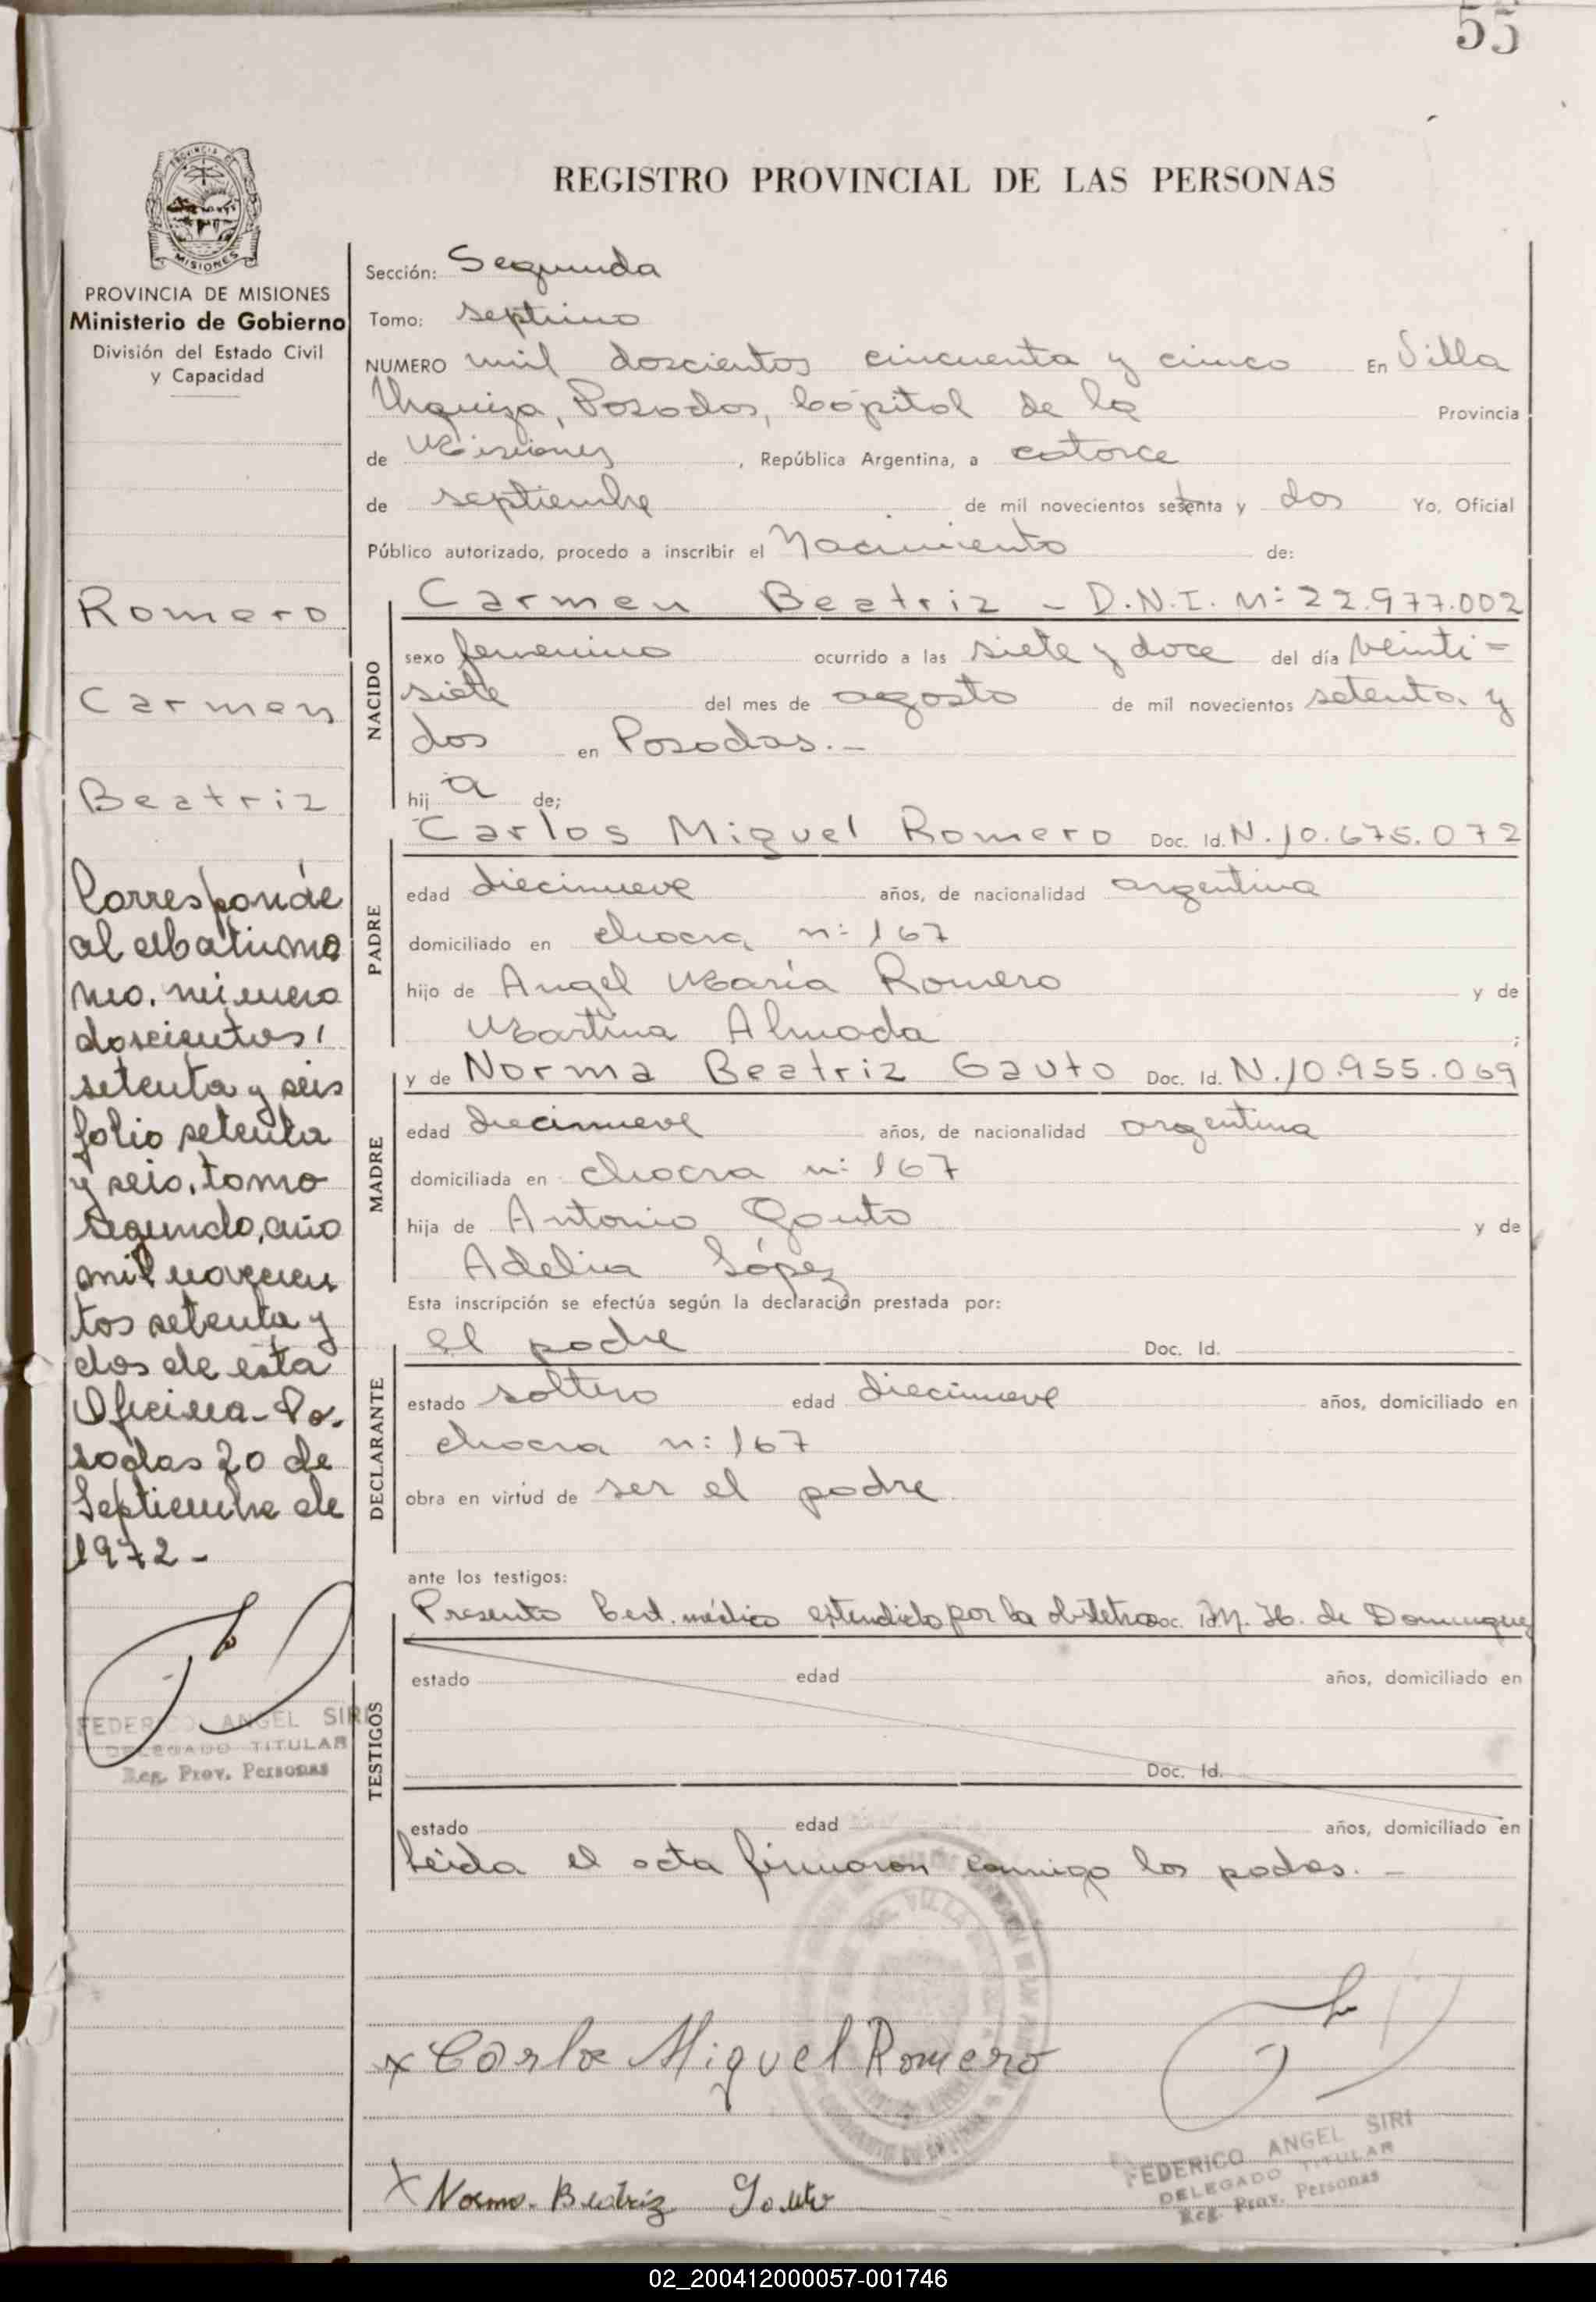 55
PROVINCIA DE
MISIONES
REGISTRO PROVINCIAL DE LAS PERSONAS
PROVINCIA DE MISIONES
Ministerio de Gobierno
División del Estado Civil
y Capacidad
Romero
Carmen
Beatriz
Corresponde
al
nro. número
doscientos
setenta y seis
folio setenta
y seis, tomo
segundo, año
mil novecien
tos setenta y
dos de esta
Oficina - Po-
sadas 20 de
Septiembre de
1972 -
FEDERICO ANGEL SIRI
DELEGADO TITULAR
Reg. Prov. Personas
Sección: Segunda
Tomo: septimo
NUMERO mil doscientos cincuenta y cinco En Villa
Urquiza, Posadas, Cápital de la Provincia
de Misiones, República Argentina, a catorce
de septiembre de mil novecientos setenta y dos Yo, Oficial
Público autorizado, procedo a inscribir el Nacimiento de:
NACIDO
Carmen Beatriz - D.N.I. Nº 22.977.002
sexo femenino ocurrido a las siete y doce del día veinti=
siete del mes de agosto de mil novecientos setenta y
dos en Posadas.-
hij a de;
PADRE
Carlos Miguel Romero Doc. Id. N. 10.675.072
edad diecinueve años, de nacionalidad argentina
domiciliado en chacra nº 167
hijo de Angel María Romero y de
Martina Almada ;
MADRE
y de Norma Beatriz Gauto Doc. Id. N. 10.955.069
edad diecinueve años, de nacionalidad argentina
domiciliada en chacra nº 167
hija de Antonio Gauto y de
Adelia López
Esta inscripción se efectúa según la declaración prestada por:
DECLARANTE
el padre Doc. Id.
estado soltero edad diecinueve años, domiciliado en
chacra nº 167
obra en virtud de ser el padre
ante los testigos:
TESTIGOS
Presento Cert. médico extendido por la obstetra M. H. de Dominguez
estado edad años, domiciliado en
Doc. Id.
estado edad años, domiciliado en
Leída el acta firmaron conmigo los padres. -
x Carlos Miguel Romero
FEDERICO ANGEL SIRI
DELEGADO TITULAR
Reg. Prov. Personas
x Norma Beatriz Gauto
02_200412000057-001746